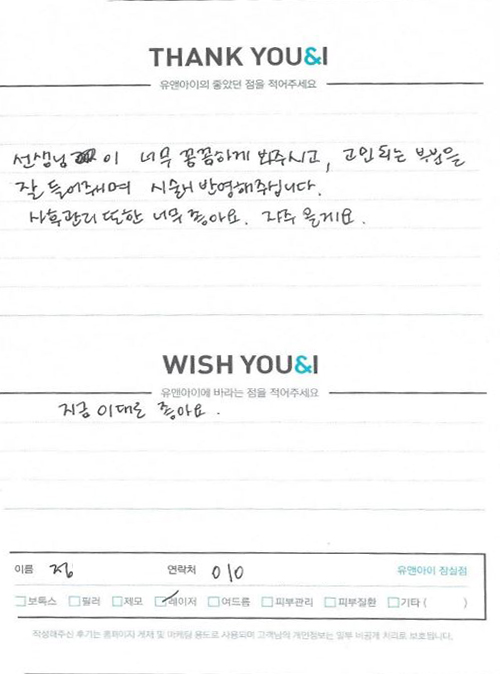 THANK YOU&I
유앤아이의 좋았던 점을 적어주세요
선생님이 너무 꼼꼼하게 봐주시고, 고민되는 부분을
잘 들어주시며 시술에 반영해주십니다.
사후관리 또한 너무 좋아요. 자주 올게요.
WISH YOU&I
유앤아이에 바라는 점을 적어주세요
지금 이대로 좋아요.
이름 정 연락처 010 유앤아이 잠실점
보톡스 필러 제모 레이저 여드름 피부관리 피부질환 기타 ( )
작성해주신 후기는 홈페이지 게재 및 마케팅 용도로 사용되며 고객님의 개인정보는 일부 비공개 처리로 보호됩니다.